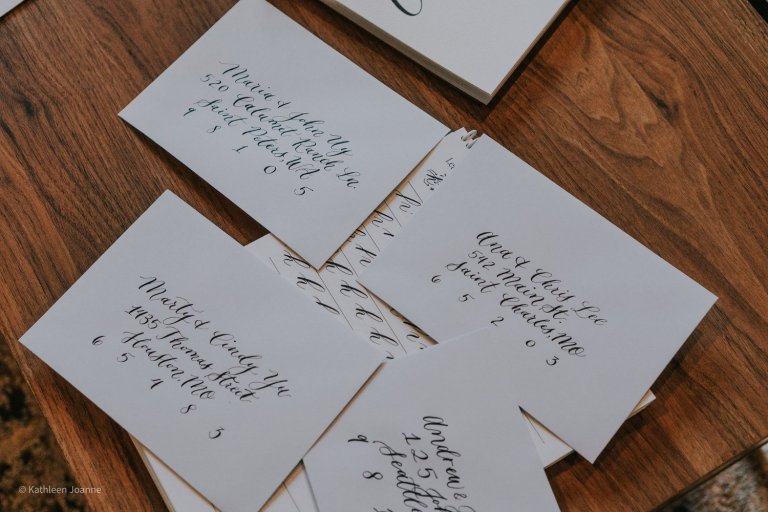 Maria & John Uy
520 Calumet Ranch Ln.
Saint Peters, WA
9 8 1 0 5
Ana & Chris Lee
542 Main St.
Saint Charles, MO
6 5 2 0 3
Marty & Cindy Yu
1435 Thomas Street
Houston, MO
6 5 4 8 3
Andrew &
125 Joh
Seattle
9 8 1
h h h
k k k k k
© Kathleen Joanne